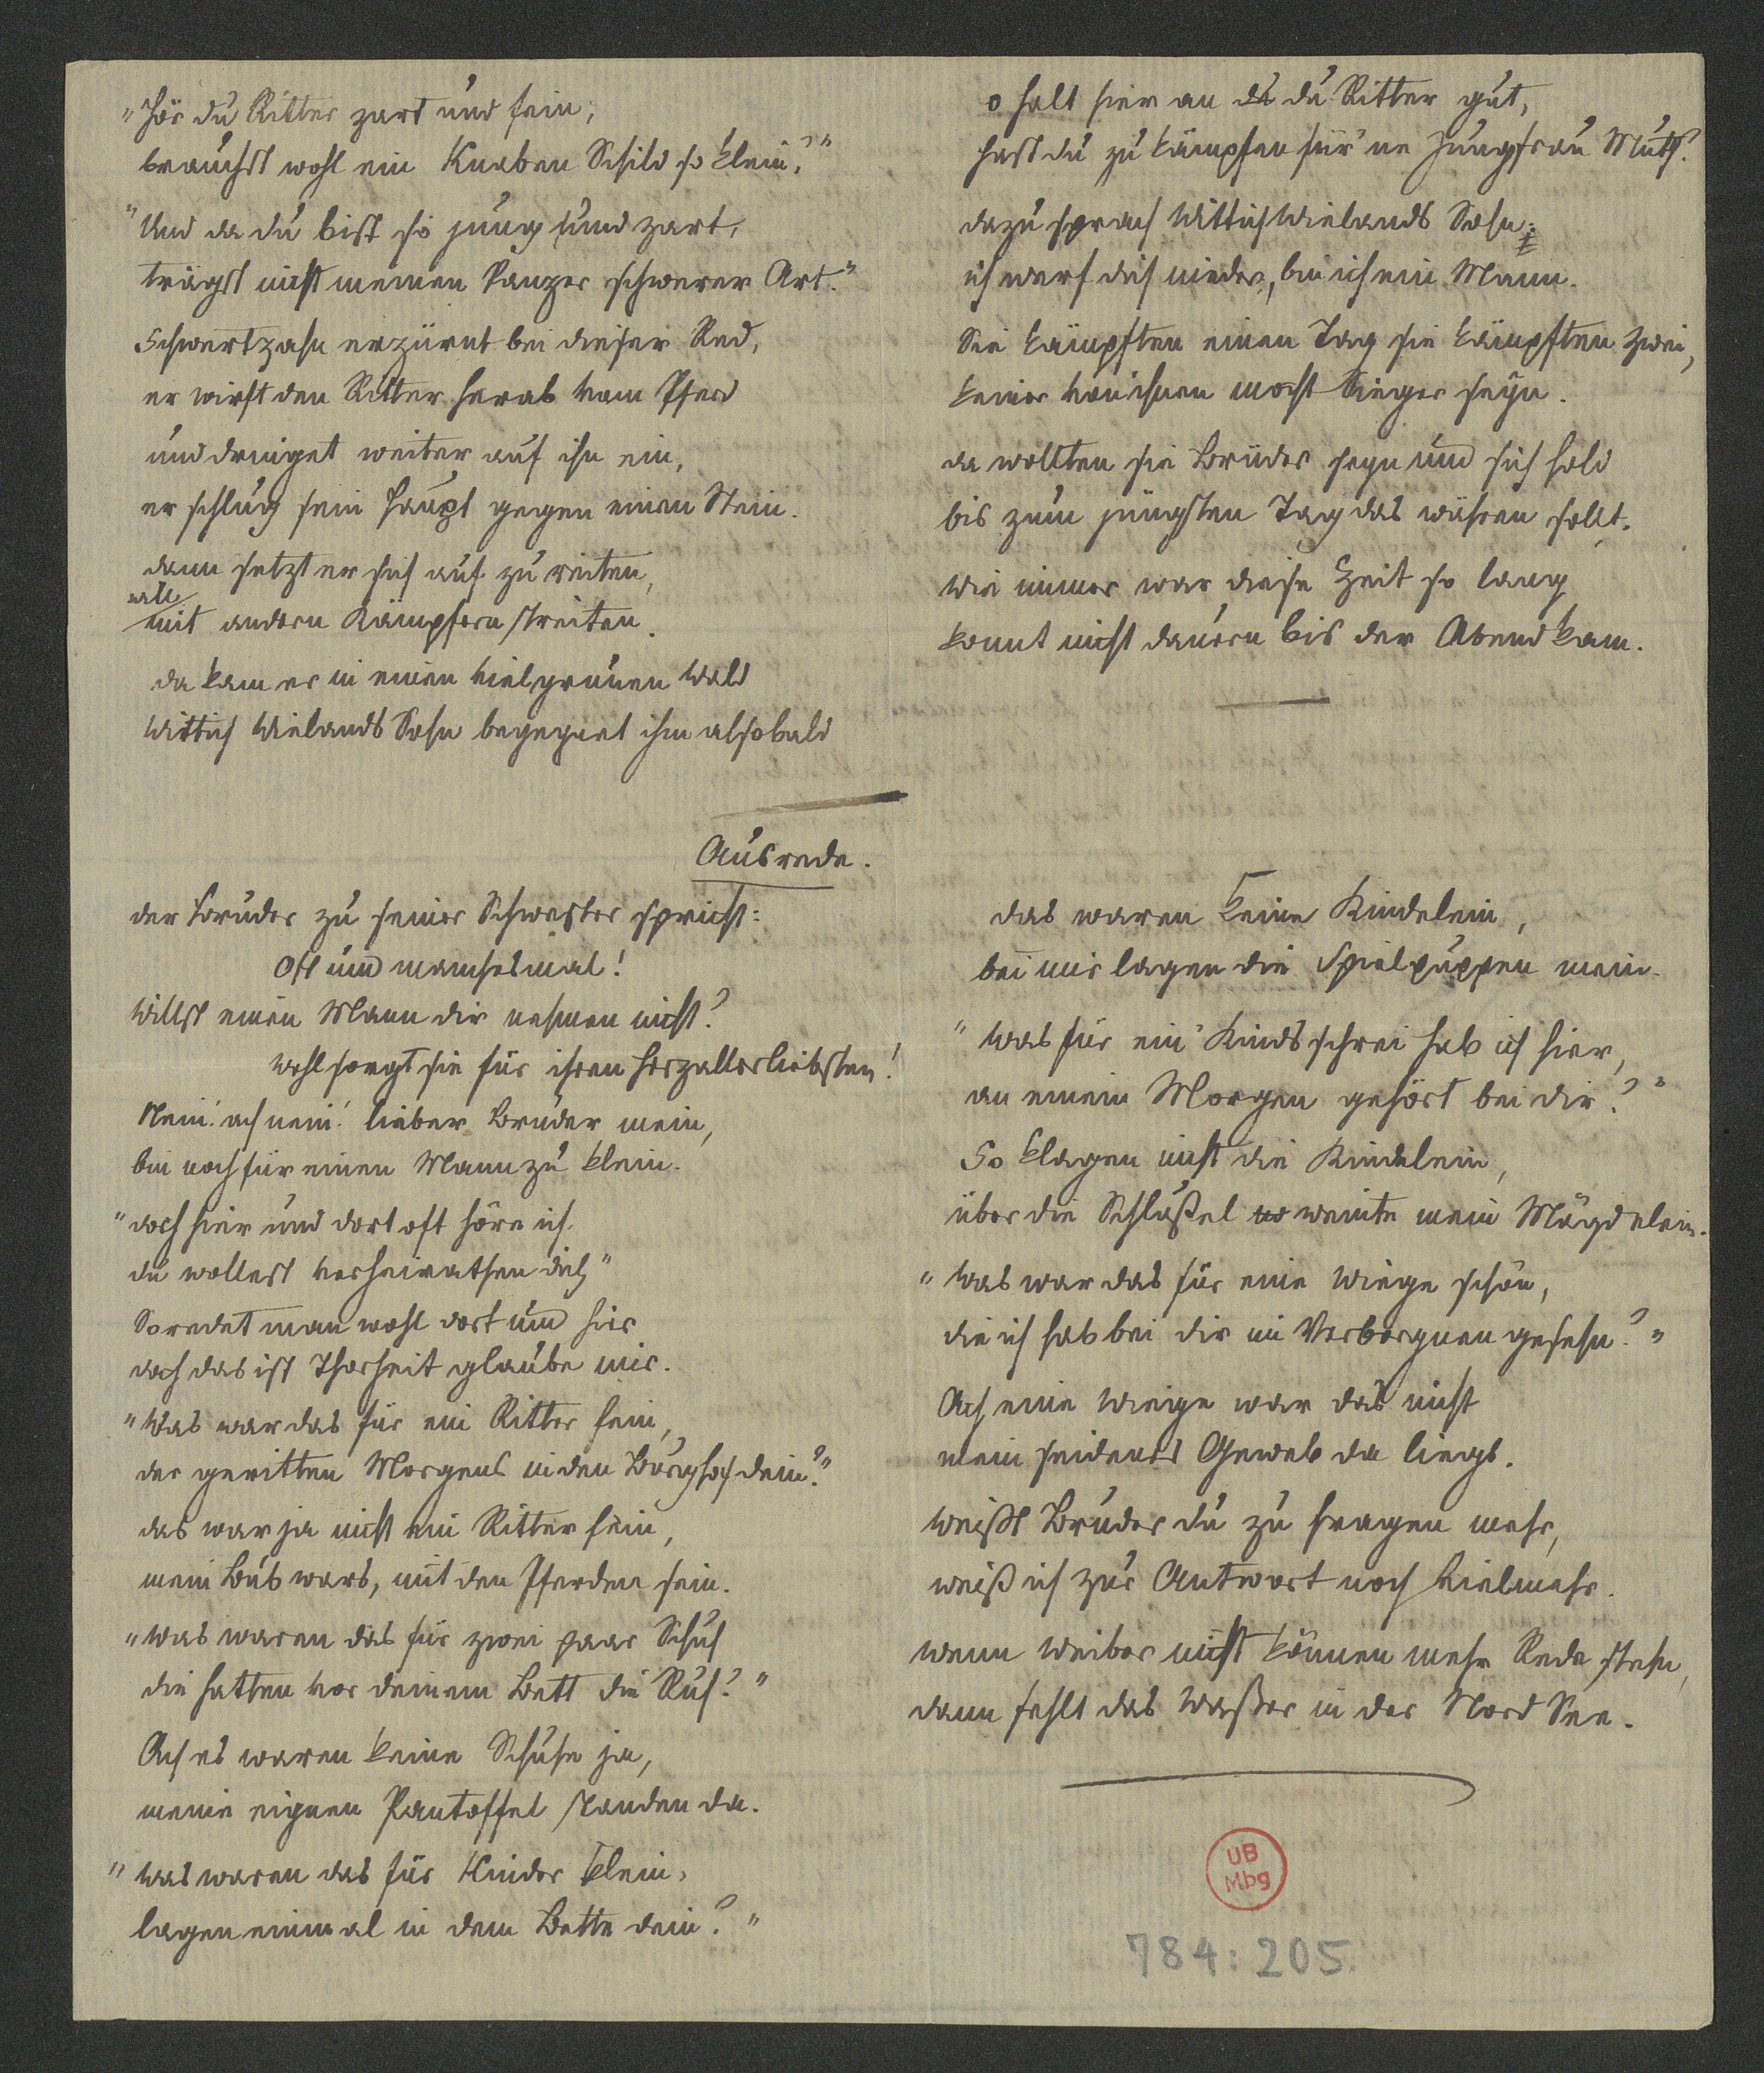 "Hör du Ritter zart und fein,
brauchst wohl ein Knaben Schild so klein?"
"Und da du bist so jung und zart,
trägst nicht meinen Panzer schwerer Art."
Schwertzahn erzürnt bei dieser Red,
er wirft den Ritter herab vom Pferd
und dringet weiter auf ihn ein,
er schlug sein Haupt gegen einen Stein.
dann setzt er sich auf zu reiten,
will
mit andern Kämpfern streiten.
da kam er in einen vielgrünen Wald
Wittich Wielands Sohn begegnet ihm alsobald
o halt hier an du Ritter gut,
hast du zu kämpfen für 'ne Jungfrau Muth?
dazu sprach Wittich Wielands Sohn:
ich werf dich nieder, bin ich ein Mann.
Sie kämpften einen Tag sie kämpften zwei,
keiner von ihnen mocht Sieger seyn.
da wollten sie Brüder seyn und sich hold
bis zum jüngsten Tag das währen sollt.
Wie immer war diese Zeit so lang
konnt nicht dauern bis der Abend kam.
Ausrede.
der Bruder zu seiner Schwester spricht:
Oft und manchesmal!
Willst einen Mann dir nehmen nicht?
wohl sorgt sie für ihren Herzallerliebsten!
Nein! ach nein! lieber Bruder mein,
bin noch für einen Mann zu klein.
"doch hier und dort oft höre ich
du wollest verheirathen dich"
So redet man wohl dort und hier
doch das ist Thorheit glaube mir.
"Was war das für ein Ritter fein,
der geritten Morgens in den Burghof dein?"
das war ja nicht ein Ritter fein,
mein Bub wars, mit den Pferden sein.
"was waren das für zwei paar Schuh
die hatten vor deinem Bett die Ruh?"
Ach es waren keine Schuhe ja,
meine eignen Pantoffel standen da.
"was waren das für Kinder klein,
lagen einmal in dem Bette dein?"
das waren keine Kindelein,
bei mir lagen die Spielpuppen mein.
"Was für ein Kindsschrei hab ich hier,
an einem Morgen gehört bei dir?"
So klagen nicht die Kindelein,
über die Schlüßel weinte mein Mägdelein.
"Was war das für eine Wiege schön,
die ich hab bei dir im Verborgnen gesehn?"
Ach eine Wiege war das nicht
mein seidenes Geweb da liegt.
Weißt Bruder du zu fragen mehr,
weiß ich zur Antwort noch vielmehr.
wenn Weiber nicht können mehr Rede stehn,
dann fehlt das Waßer in der Nord See.
UB
Mbg
784:205.